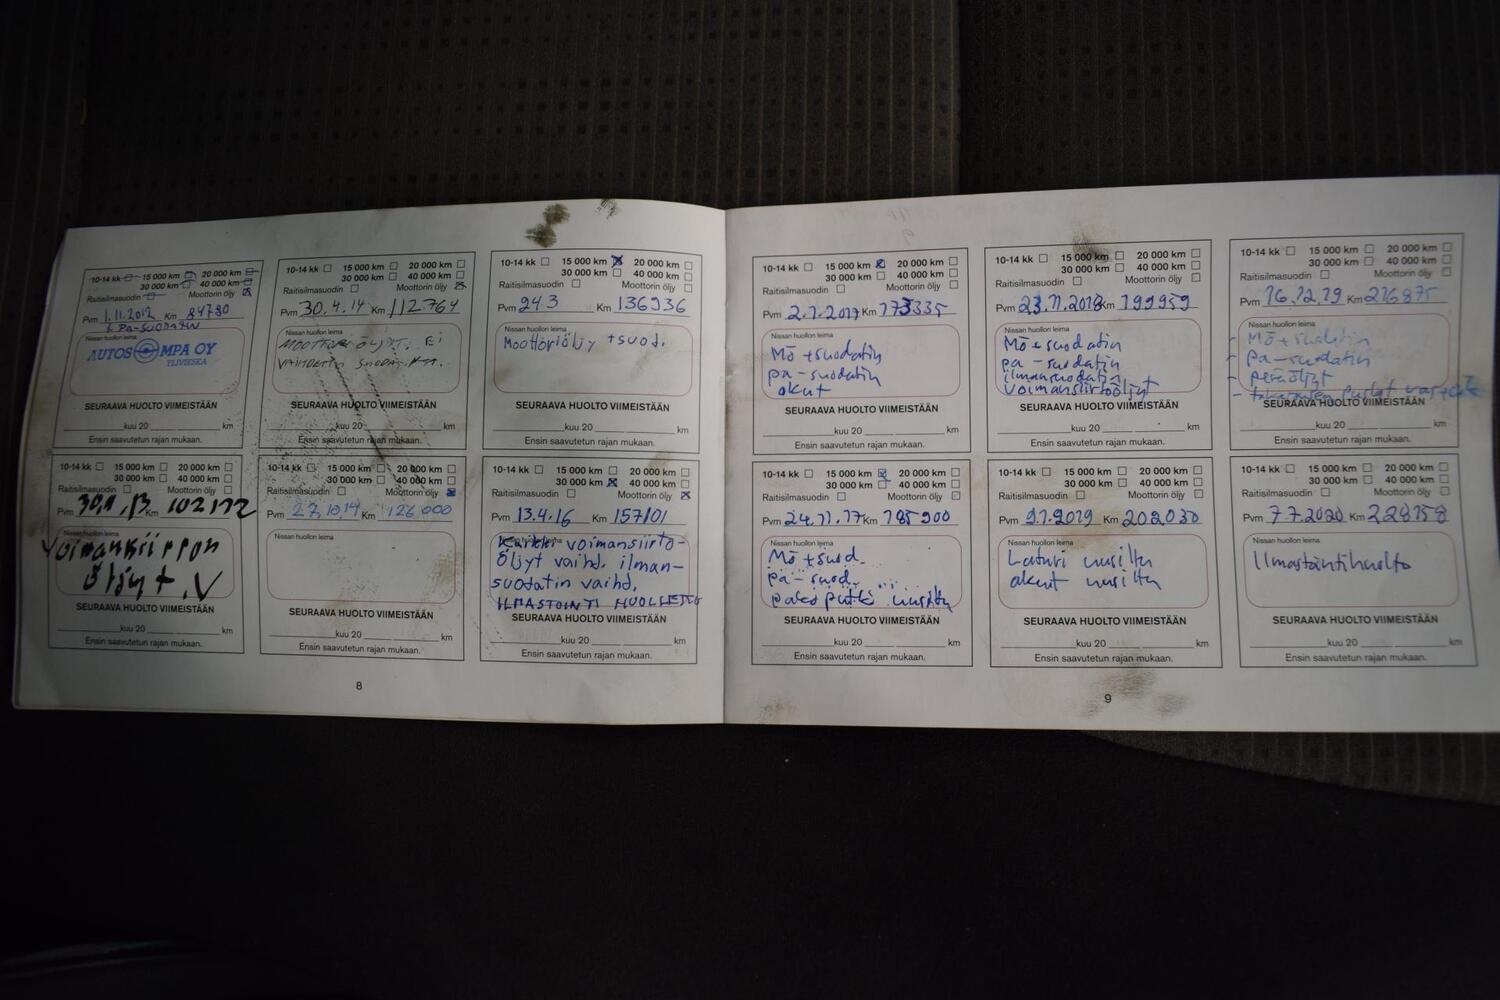 10-14 kk 15 000 km 20 000 km
30 000 km
Raitisilmasuodin Moottorin öljy
Pvm 1.11.2012 Km 84780
& PA-SUODATIN
Nissan huollon leima
AUTOSOMPA OY
YLIVIESKA
SEURAAVA HUOLTO VIIMEISTÄÄN
kuu 20 km
Ensin saavutetun rajan mukaan.
10-14 kk 15 000 km 20 000 km
30 000 km 40 000 km
Raitisilmasuodin Moottorin öljy
Pvm 30.1.13 Km 102172
Nissan huollon leima
Voimansiirron
öljyt. V
SEURAAVA HUOLTO VIIMEISTÄÄN
kuu 20 km
Ensin saavutetun rajan mukaan.
10-14 kk 15 000 km 20 000 km
30 000 km 40 000 km
Raitisilmasuodin Moottorin öljy
Pvm 30.4.14 Km 112.764
Nissan huollon leima
MOOTTORIÖLJYT. EI
SEURAAVA HUOLTO VIIMEISTÄÄN
kuu 20 km
Ensin saavutetun rajan mukaan.
10-14 kk 15 000 km 20 000 km
30 000 km 40 000 km
Raitisilmasuodin Moottorin öljy
Pvm 27.10.14 Km 126 000
Nissan huollon leima
SEURAAVA HUOLTO VIIMEISTÄÄN
kuu 20 km
Ensin saavutetun rajan mukaan.
10-14 kk 15 000 km 20 000 km
30 000 km 40 000 km
Raitisilmasuodin Moottorin öljy
Pvm 24 3 Km 136936
Nissan huollon leima
Moottoriöljy + suod.
SEURAAVA HUOLTO VIIMEISTÄÄN
kuu 20 km
Ensin saavutetun rajan mukaan.
10-14 kk 15 000 km 20 000 km
30 000 km 40 000 km
Raitisilmasuodin Moottorin öljy
Pvm 13.4.16 Km 157101
Nissan huollon leima
Kaikki voimansiirto-
öljyt vaihd. ilman-
suodatin vaihd.
ILMASTOINTI HUOLLETTU
SEURAAVA HUOLTO VIIMEISTÄÄN
kuu 20 km
Ensin saavutetun rajan mukaan.
8
10-14 kk 15 000 km 20 000 km
30 000 km 40 000 km
Raitisilmasuodin Moottorin öljy
Pvm 2.1.2017 Km 173335
Nissan huollon leima
Mö + suodatin
pa-suodatin
akut
SEURAAVA HUOLTO VIIMEISTÄÄN
kuu 20 km
Ensin saavutetun rajan mukaan.
10-14 kk 15 000 km 20 000 km
30 000 km 40 000 km
Raitisilmasuodin Moottorin öljy
Pvm 24.11.17 Km 185900
Nissan huollon leima
Mö + suod.
pa-suod.
pakoputki uusittu
SEURAAVA HUOLTO VIIMEISTÄÄN
kuu 20 km
Ensin saavutetun rajan mukaan.
10-14 kk 15 000 km 20 000 km
30 000 km 40 000 km
Raitisilmasuodin Moottorin öljy
Pvm 23.11.2018 Km 199959
Nissan huollon leima
Mö + suodatin
pa-suodatin
ilmansuodatin +
voimansiirtoöljyt
SEURAAVA HUOLTO VIIMEISTÄÄN
kuu 20 km
Ensin saavutetun rajan mukaan.
10-14 kk 15 000 km 20 000 km
30 000 km 40 000 km
Raitisilmasuodin Moottorin öljy
Pvm 9.1.2019 Km 202030
Nissan huollon leima
Laturi uusittu
akut uusittu
SEURAAVA HUOLTO VIIMEISTÄÄN
kuu 20 km
Ensin saavutetun rajan mukaan.
10-14 kk 15 000 km 20 000 km
30 000 km 40 000 km
Raitisilmasuodin Moottorin öljy
Pvm 16.12.19 Km 216875
Nissan huollon leima
- Mö + suodatin
- pa-suodatin
- peräöljyt
- takajousen puslat
SEURAAVA HUOLTO VIIMEISTÄÄN
kuu 20 km
Ensin saavutetun rajan mukaan.
10-14 kk 15 000 km 20 000 km
30 000 km 40 000 km
Raitisilmasuodin Moottorin öljy
Pvm 7.7.2020 Km 228158
Nissan huollon leima
Ilmastointihuolto
SEURAAVA HUOLTO VIIMEISTÄÄN
kuu 20 km
Ensin saavutetun rajan mukaan.
9